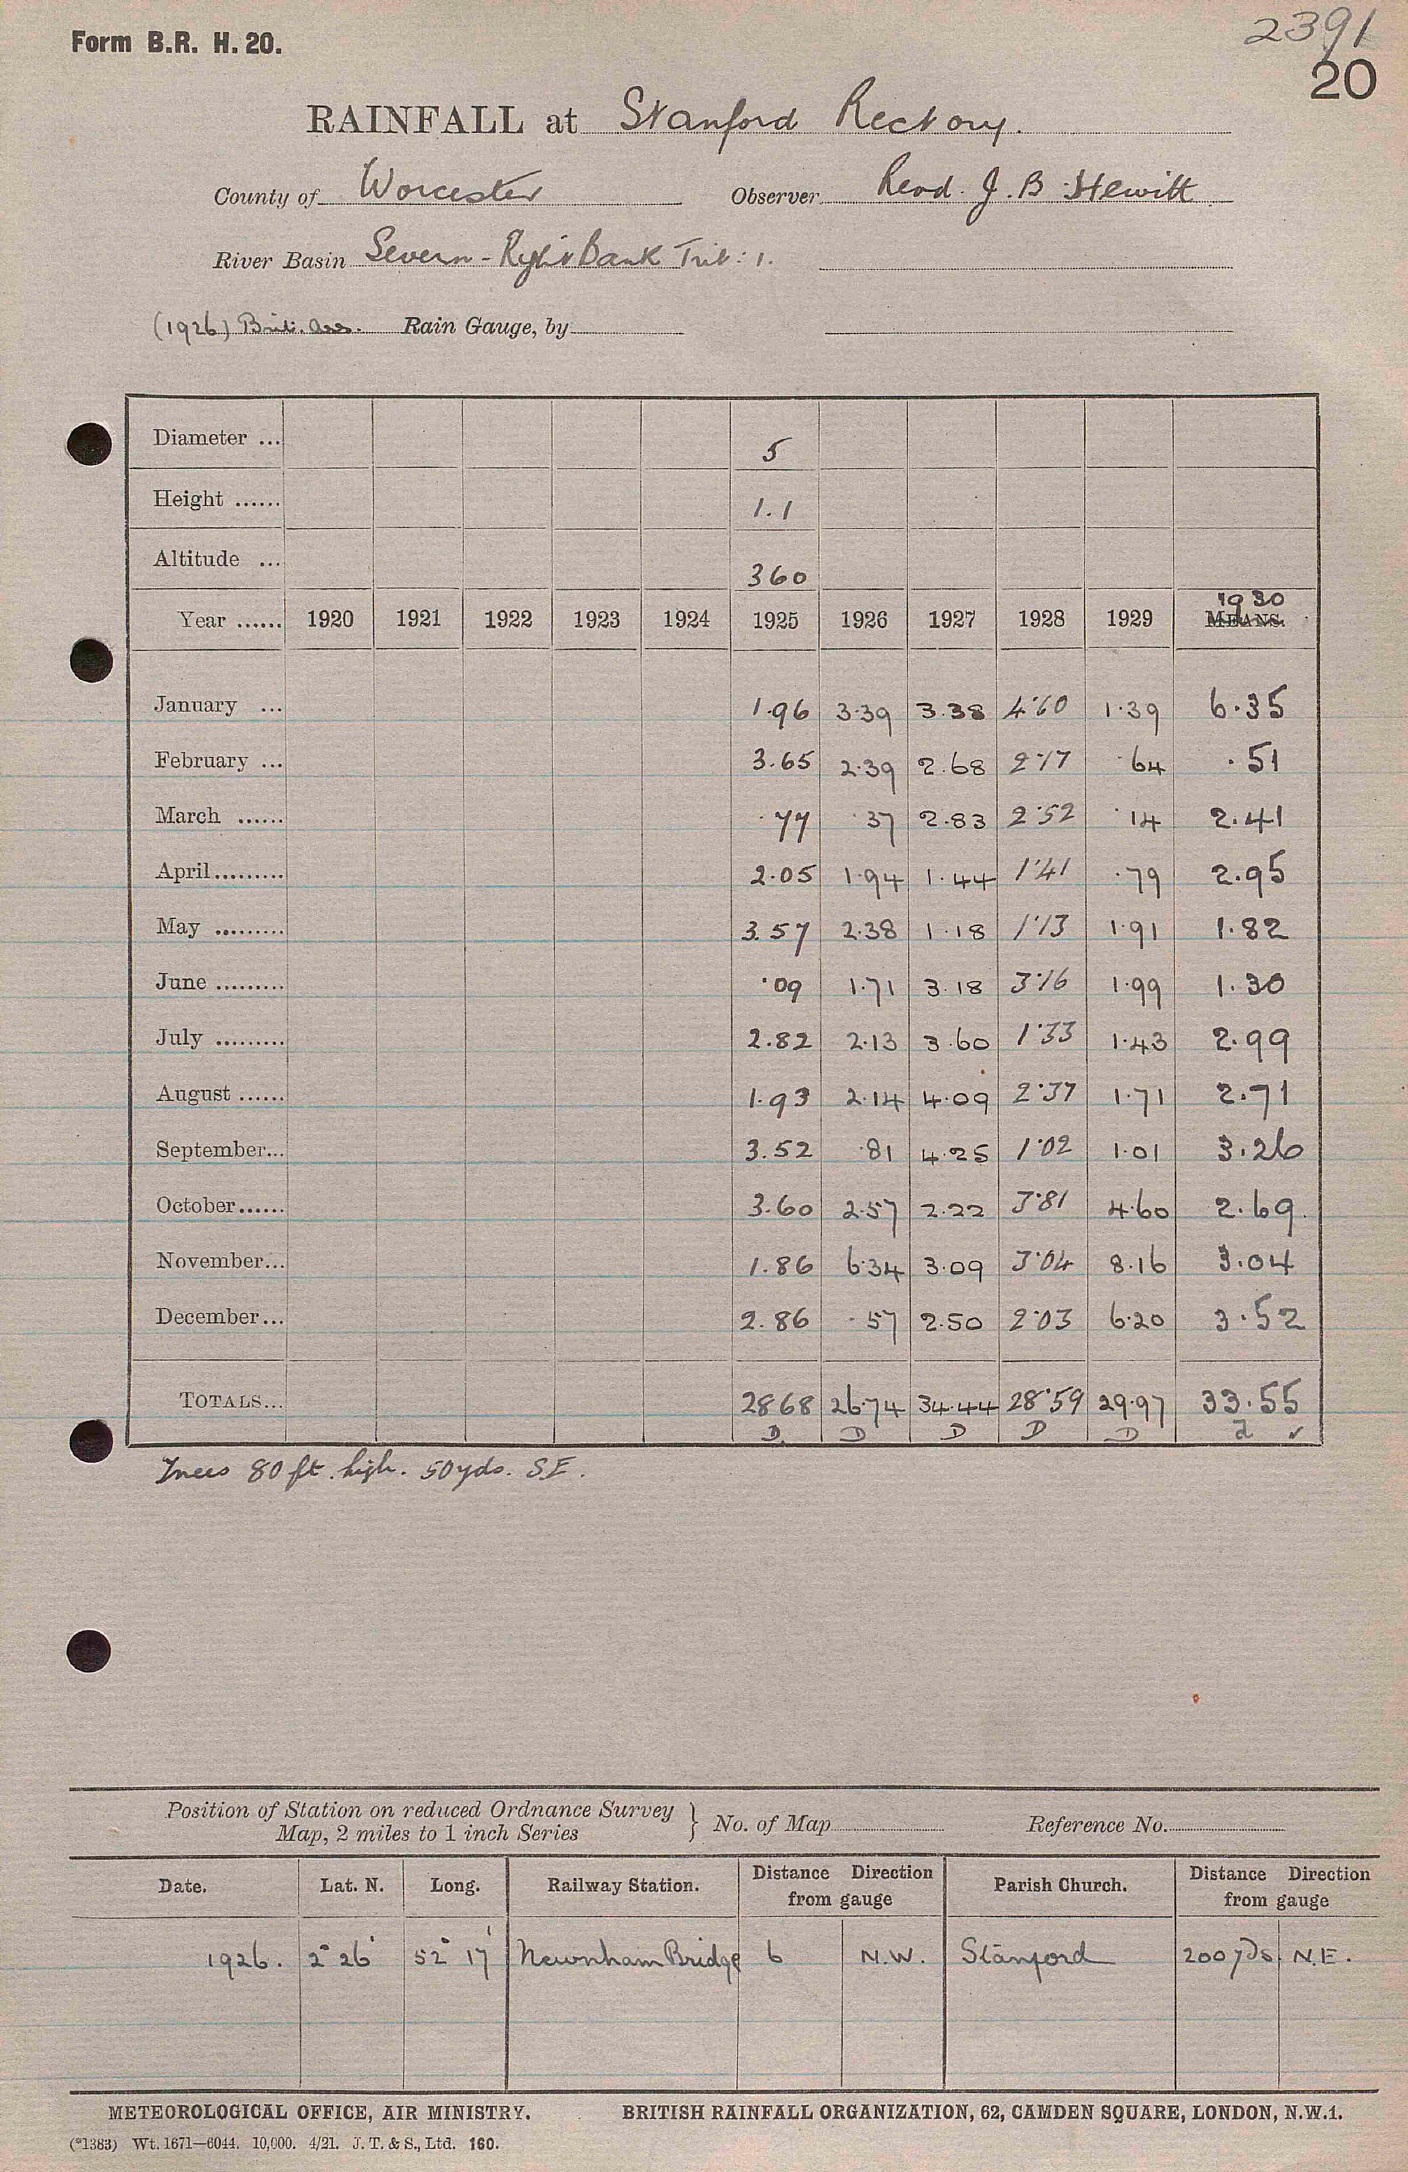 Form B.R. H. 20.
2391
20
RAINFALL at Stanford Rectory.
County of Worcester Observer Revd. J. B. Hewitt
River Basin Severn - Right Bank Trib: 1.
(1926) Brit. Ass. Rain Gauge, by
Diameter ... 5
Height ...... 1.1
Altitude ... 360
1930
Year ...... 1920 1921 1922 1923 1924 1925 1926 1927 1928 1929 MEANS.
January ... 1.96 3.39 3.38 4.60 1.39 6.35
February ... 3.65 2.39 2.68 2.17 .64 .51
March ...... .77 .37 2.83 2.52 .14 2.41
April ......... 2.05 1.94 1.44 1.41 .79 2.95
May ......... 3.57 2.38 1.18 1.13 1.91 1.82
June ......... .09 1.71 3.18 3.16 1.99 1.30
July ......... 2.82 2.13 3.60 1.33 1.43 2.99
August ...... 1.93 2.14 4.09 2.37 1.71 2.71
September... 3.52 .81 4.25 1.02 1.01 3.26
October...... 3.60 2.57 2.22 3.81 4.60 2.69
November... 1.86 6.34 3.09 3.04 8.16 3.04
December... 2.86 .57 2.50 2.03 6.20 3.52
TOTALS... 28.68 26.74 34.44 28.59 29.97 33.55
D D D D D d ✓
Trees 80 ft. high. 50 yds. S.E.
Position of Station on reduced Ordnance Survey
Map, 2 miles to 1 inch Series } No. of Map Reference No.
Date. Lat. N. Long. Railway Station. Distance Direction from gauge Parish Church. Distance Direction from gauge
1926. 2° 26' 52° 17' Newnham Bridge 6 N.W. Stanford 200 yds. N.E.
METEOROLOGICAL OFFICE, AIR MINISTRY. BRITISH RAINFALL ORGANIZATION, 62, CAMDEN SQUARE, LONDON, N.W.1.
(*1383) Wt. 1671—6044. 10,000. 4/21. J. T. & S., Ltd. 160.